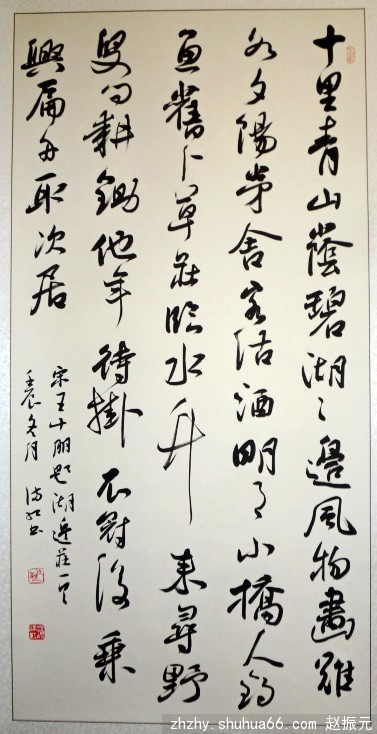 十里青山蔭碧湖々邊風物畫難
如夕陽茅舍客沽酒明月小橋人釣
魚舊卜草莊臨水竹來尋野
叟問耕鋤他年待掛衣冠後乘
興扁舟取次居
宋王十朋題湖邊莊一首
壬辰冬月 书
zhzhy.shuhua66.com 赵振元